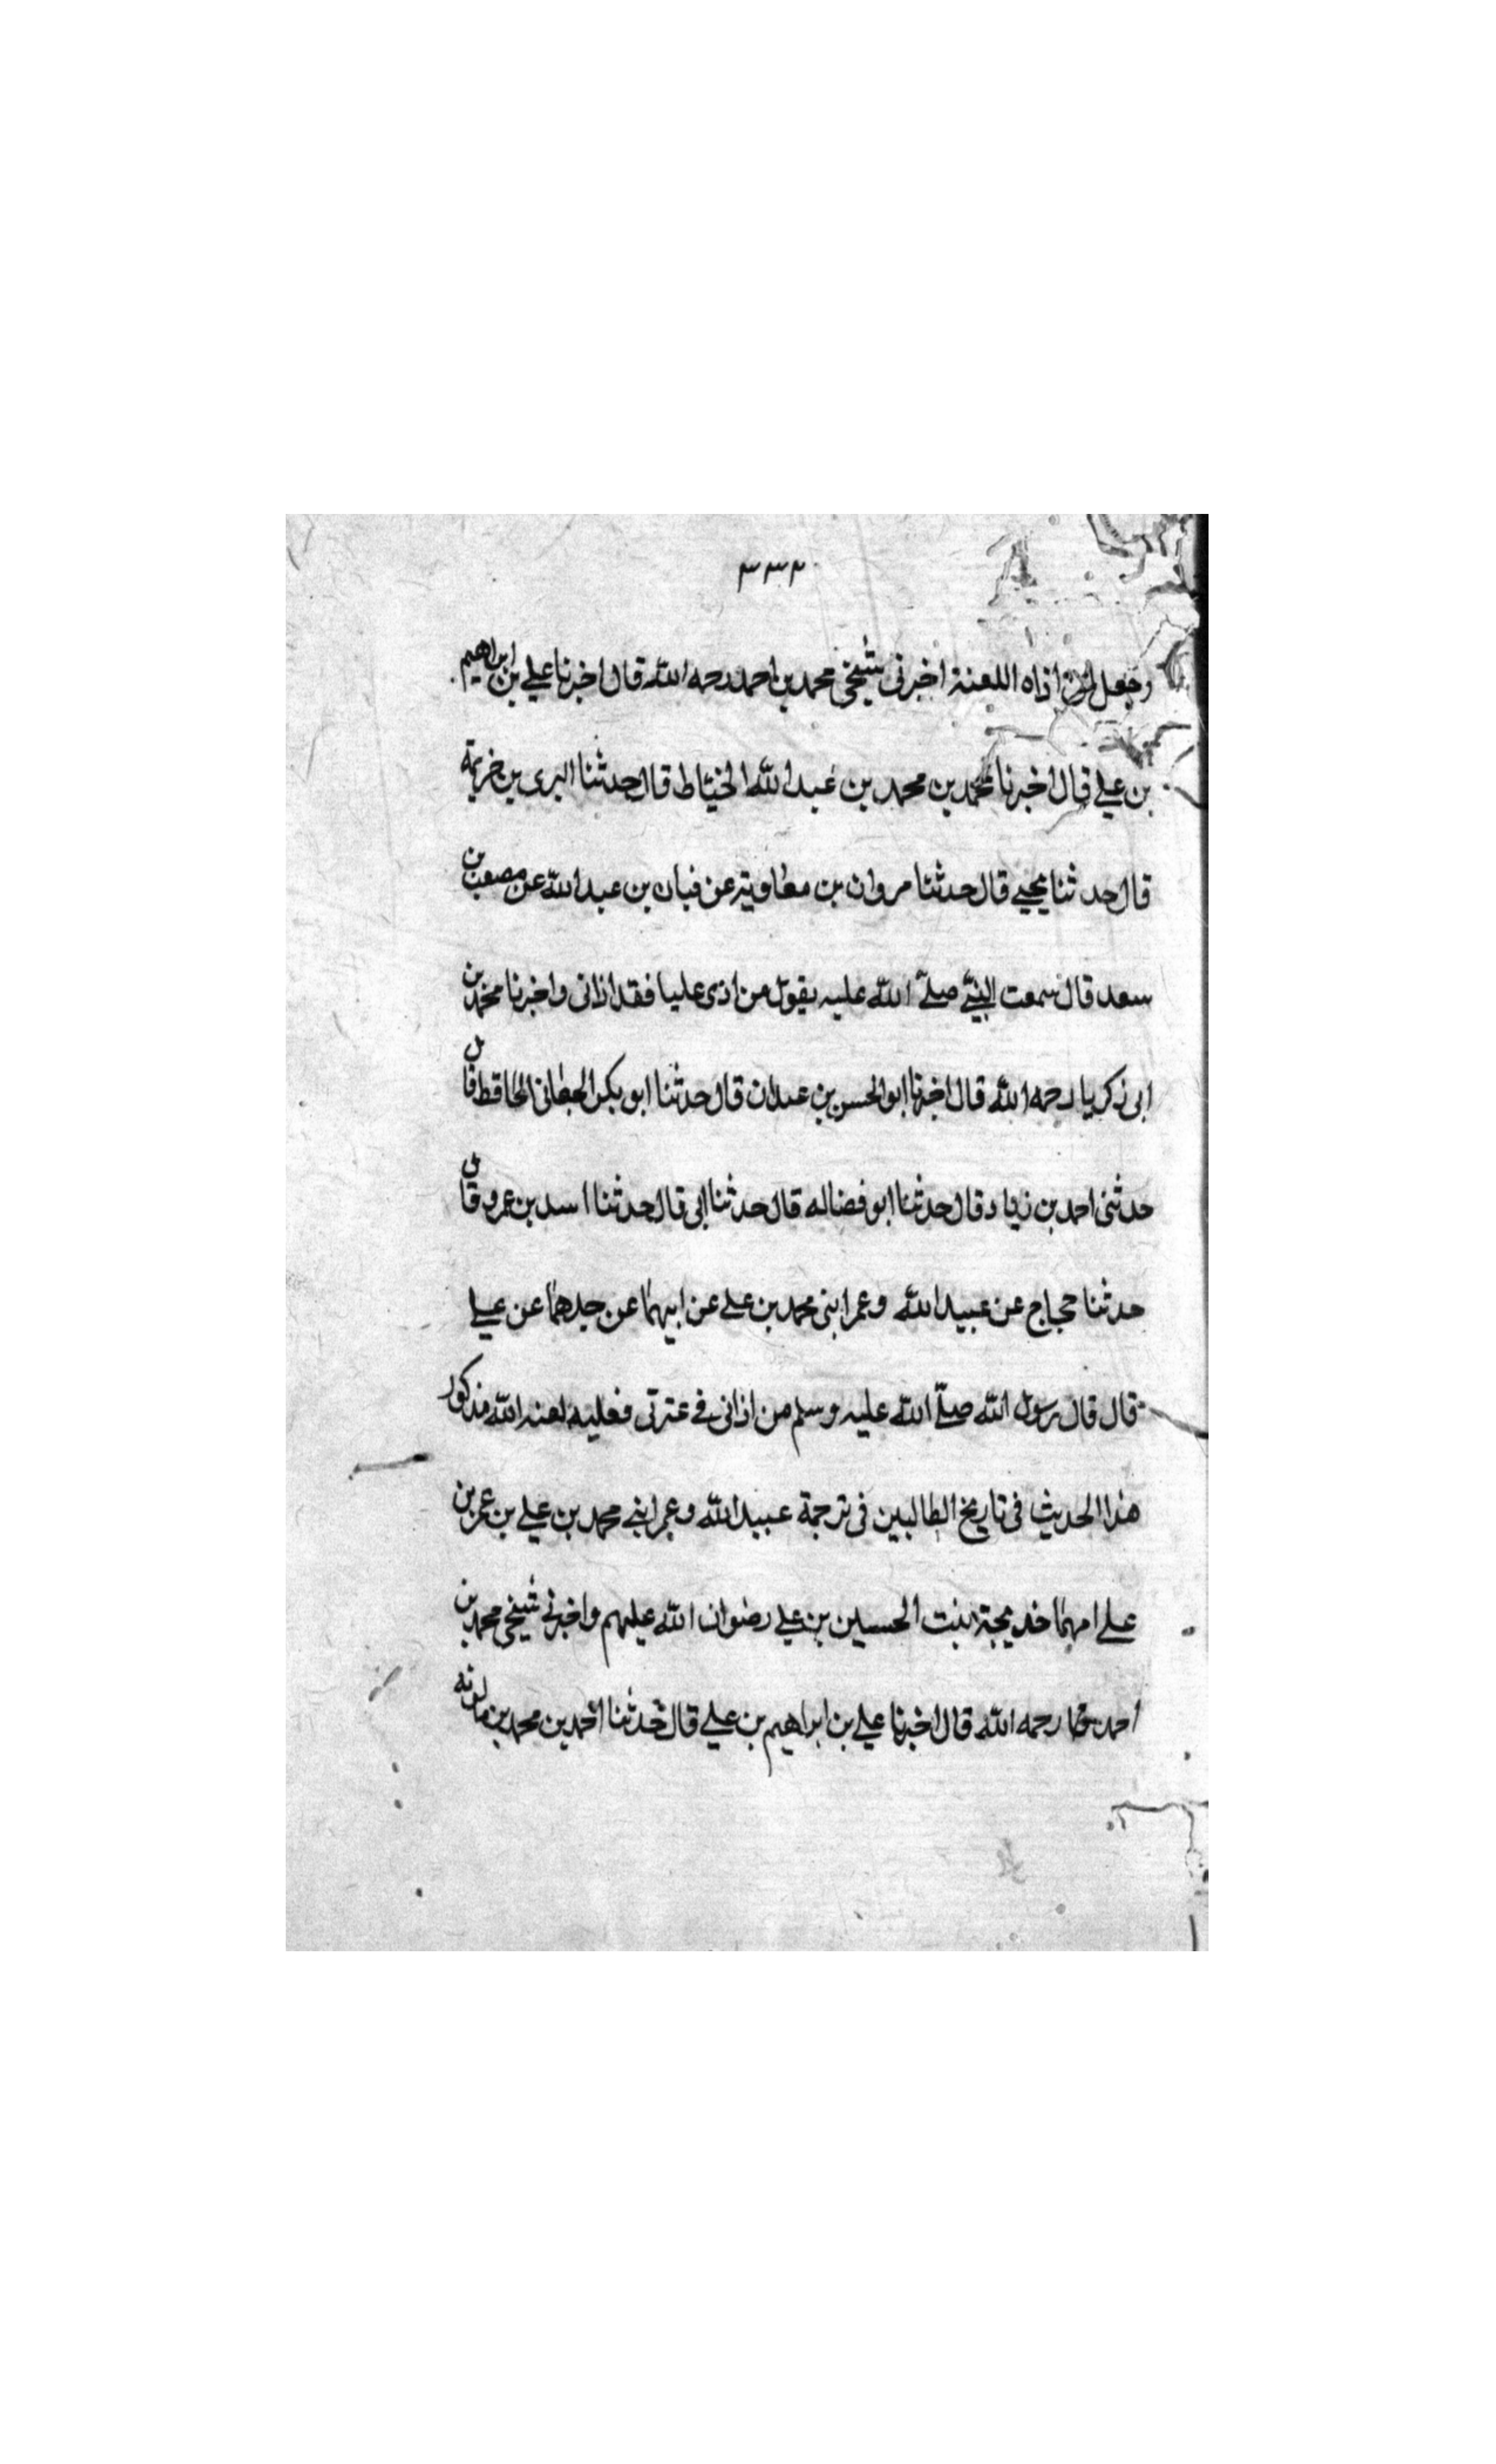 ٣٣٢
وجعل لمن اذاه اللعنة اخبرنى شيخى محمد بن احمد رحمه الله قال اخبرنا علي بن ابراهيم
بن علي قال اخبرنا محمد بن محمد بن عبد الله الخياط قال حدثنا البرى بن خزيمة
قال حدثنا يحيي قال حدثنا مروان بن معاوية عن فبان بن عبد الله عن مصعب بن
سعد قال سمعت النبي صلى الله عليه يقول من اذى عليا فقد اذانى واخبرنا محمد بن
ابى زكريا رحمه الله قال اخبرنا ابو الحسن بن عبدان قال حدثنا ابو بكر الجعانى الحافظ قال
حدثنى احمد بن زياد قال حدثنا ابو فضاله قال حدثنا ابى قال حدثنا اسد بن عمرو قال
حدثنا حجاج عن عبيد الله وعمر ابنى محمد بن علي عن ابيهما عن جدهما عن علي
قال قال رسول الله صلى الله عليه وسلم من اذانى في عترتى فعليه لعنه الله مذكور
هذا الحديث فى تاريخ الطالبين فى ترجمة عبيد الله وعمر ابني محمد بن علي بن عمر بن
علي امهما خديجة بنت الحسين بن علي رضوان الله عليهم واخبرنى شيخى محمد بن
احمد رحمه الله قال اخبرنا علي بن ابراهيم بن علي قال حدثنا احمد بن محمد بن